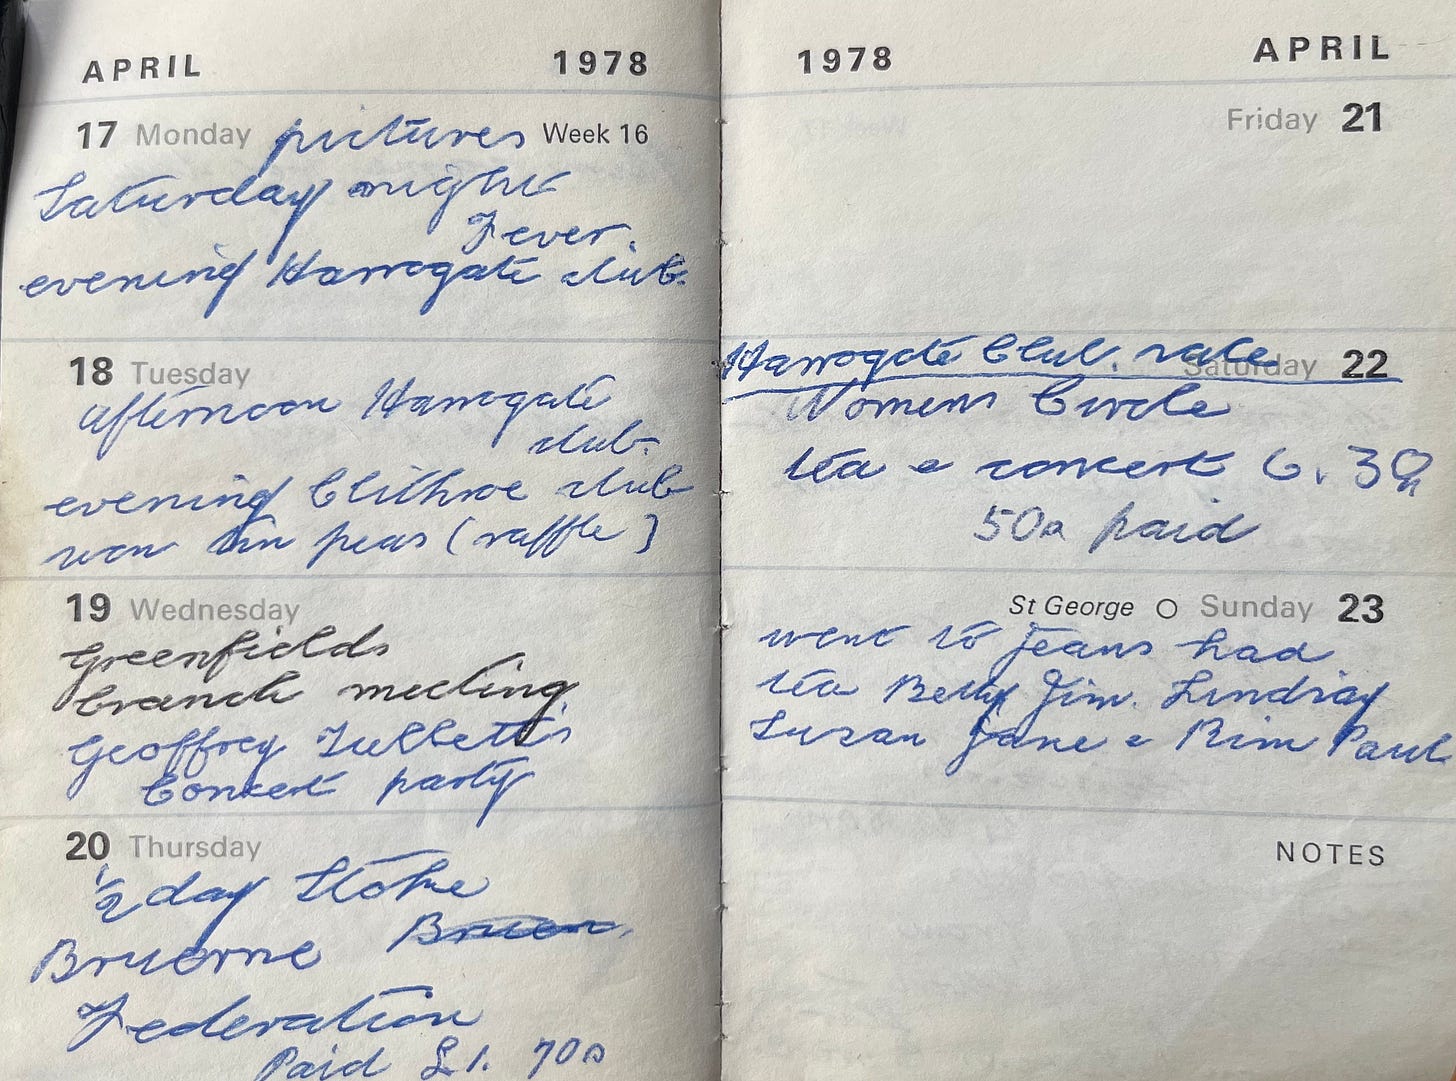 APRIL 1978
17 Monday pictures Week 16
Saturday night
Fever.
evening Harrogate club.
18 Tuesday
afternoon Harrogate
club.
evening Clithroe club
won tin peas (raffle)
19 Wednesday
Greenfields
branch meeting
Geoffrey
Concert party
20 Thursday
1/2 day Stoke
Bruerne
Federation
Paid £1. 70p
1978 APRIL
Friday 21
Harrogate Club. sale
Saturday 22
Womens Circle
tea & concert 6.30
50p paid
St George Sunday 23
went to Jeans had
tea Betty Jim. Lindsay
Suzan Jane & Paul
NOTES